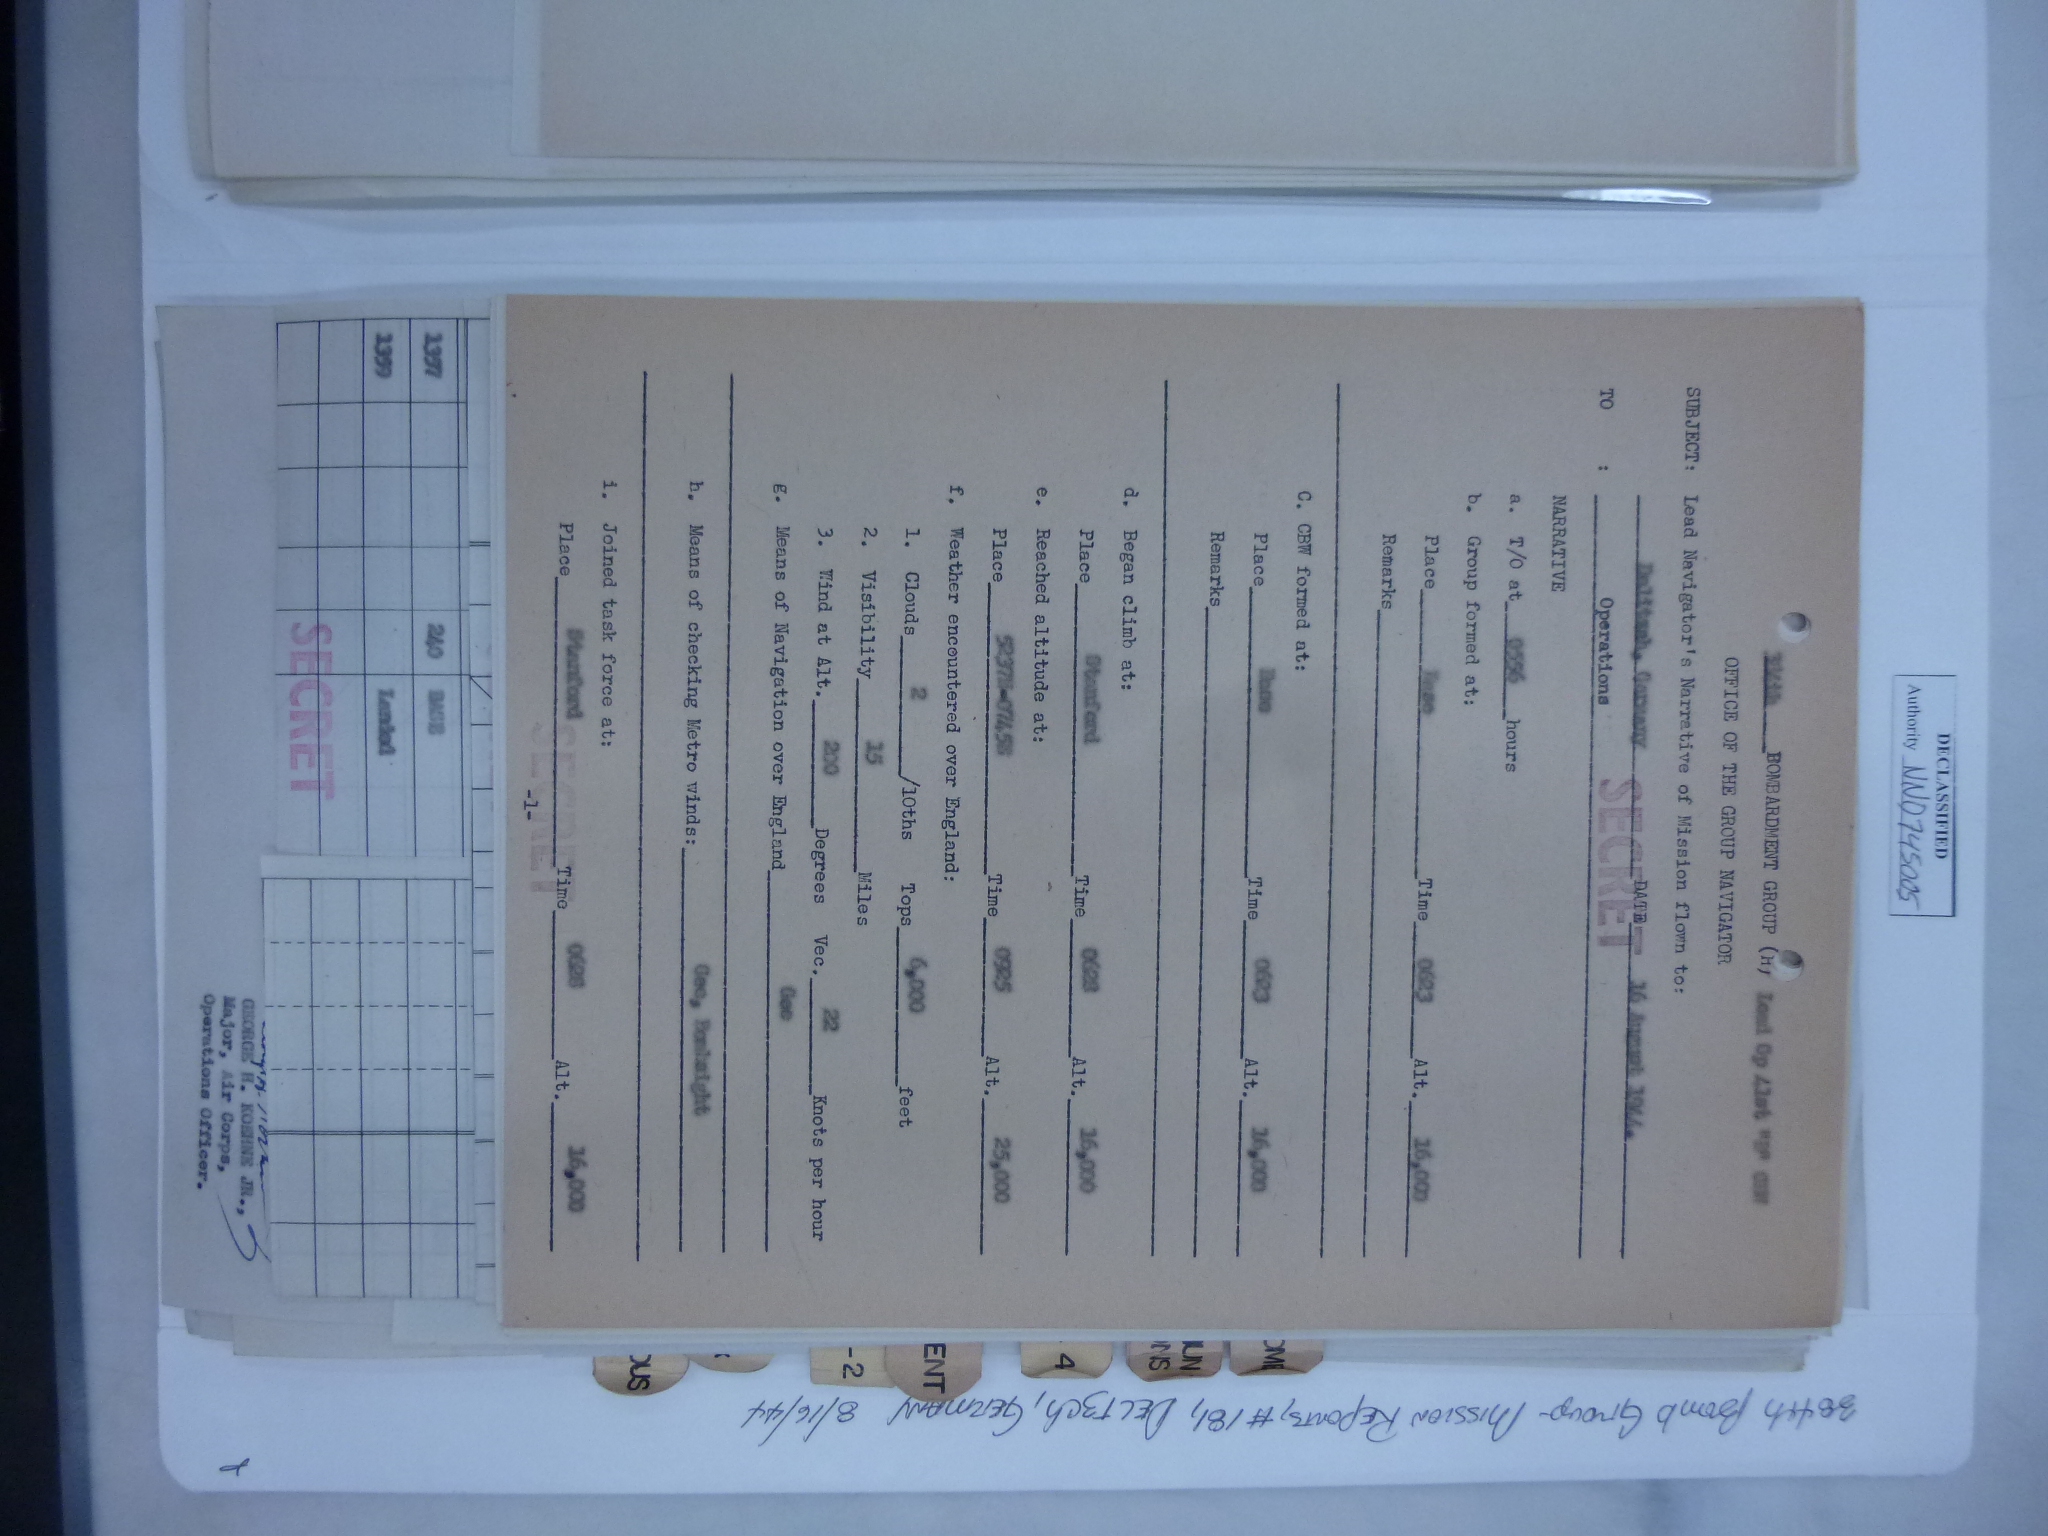 DECLASSIFIED
Authority NND 745005
384th BOMBARDMENT GROUP (H) Lead Gp 41st "B" CBW
OFFICE OF THE GROUP NAVIGATOR
SUBJECT: Lead Navigator's Narrative of Mission flown to:
Delitzsch, Germany DATE 16 August 1944.
SECRET
TO : Operations
NARRATIVE
a. T/O at 0556 hours
b. Group formed at:
Place Base Time 0623 Alt. 16,000
Remarks
C. CBW formed at:
Place Base Time 0623 Alt. 16,000
Remarks
d. Began climb at:
Place Stamford Time 0628 Alt. 16,000
e. Reached altitude at:
Place Time 0925 Alt. 25,000
f. Weather encountered over England:
1. Clouds 2 /10ths Tops 6,000 feet
2. Visibility 15 Miles
3. Wind at Alt. Degrees Vec. 22 Knots per hour
g. Means of Navigation over England Gee
h. Means of checking Metro winds: Gee,
i. Joined task force at:
Place Stamford Time 0628 Alt. 16,000
SECRET
-1-
1357 240 BASE
1359 Landed
SECRET
GEORGE H. KOEHNE JR.,
Major, Air Corps,
Operations Officer.
OME
UN
NS
4
ENT
-2
OUS
384th Bomb Group - Mission Reports, #181, DELTZCH, GERMANY 8/16/44